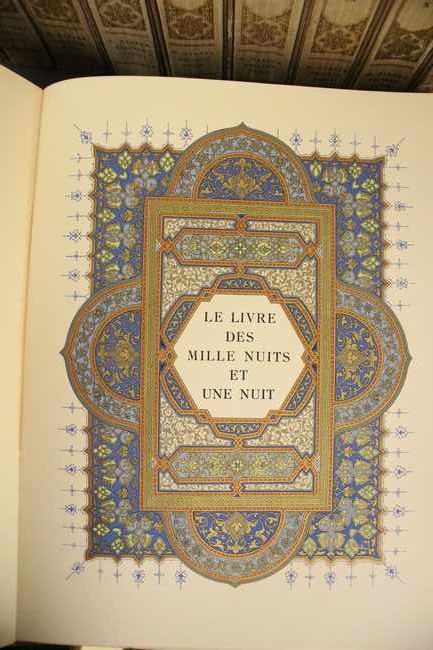 LE LIVRE
DES
MILLE NUITS
ET
UNE NUIT